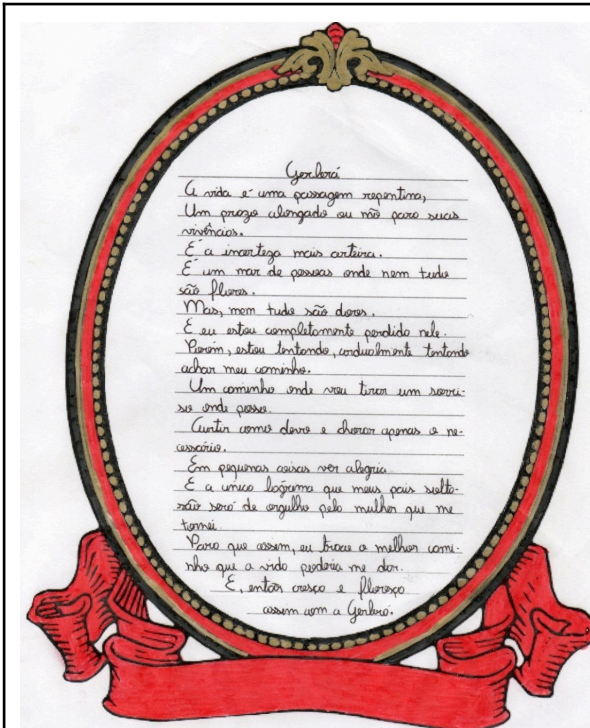 Gerberá
A vida é uma passagem repentina,
Um prazo alongado ou não para suas
vivências.
É a incerteza mais arteira.
É um mar de pessoas onde nem tudo
são flores.
Mas, nem tudo são dores.
E eu estou completamente perdido nele.
Porém, estou tentando, cordualmente tentando
achar meu caminho.
Um caminho onde vou tirar um sorri-
so onde posso.
Curtir como devo e chorar apenas o ne-
cessário.
Em pequenas coisas ver alegria.
E a única lágrima que meus pais solta-
rão será de orgulho pela mulher que me
tornei.
Para que assim, eu trace o melhor cami-
nho que a vida poderia me dar.
E, então cresço e floresço
assim com a Gerberá.